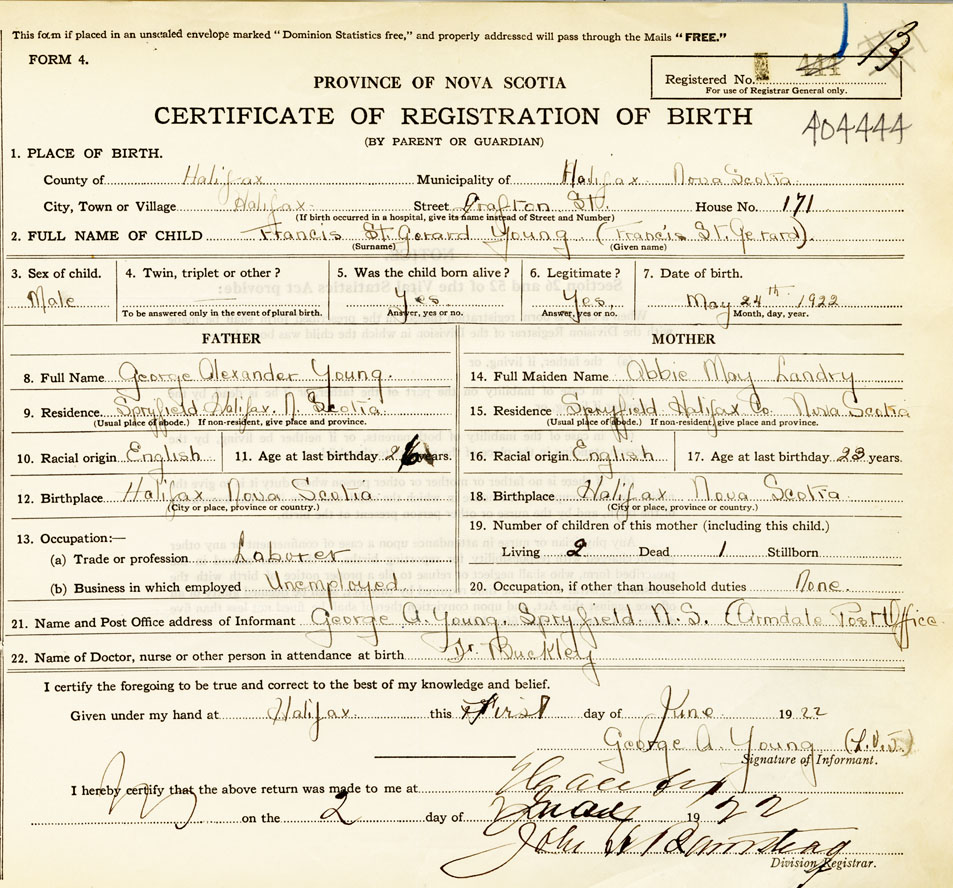 This form if placed in an unsealed envelope marked "Dominion Statistics free," and properly addressed will pass through the Mails "FREE."
13
FORM 4.
Registered No.
For use of Registrar General only.
PROVINCE OF NOVA SCOTIA
CERTIFICATE OF REGISTRATION OF BIRTH
404444
(BY PARENT OR GUARDIAN)
1. PLACE OF BIRTH.
County of Halifax Municipality of Halifax Nova Scotia
City, Town or Village Halifax Street Grafton St. House No. 171
(If birth occurred in a hospital, give its name instead of Street and Number)
2. FULL NAME OF CHILD Francis St. Gerard Young (Francis St. Gerard)
(Surname) (Given name)
3. Sex of child. 4. Twin, triplet or other? 5. Was the child born alive? 6. Legitimate? 7. Date of birth.
Male Yes. Yes. May 24th 1922
To be answered only in the event of plural birth. Answer, yes or no. Answer, yes or no. Month, day, year.
FATHER MOTHER
8. Full Name George Alexander Young. 14. Full Maiden Name Abbie May Landry
9. Residence Spryfield Halifax. N. Scotia 15. Residence Spryfield Halifax Co. Nova Scotia
(Usual place of abode.) If non-resident, give place and province. (Usual place of abode.) If non-resident, give place and province.
10. Racial origin English 11. Age at last birthday 26 years. 16. Racial origin English 17. Age at last birthday 23 years.
12. Birthplace Halifax Nova Scotia 18. Birthplace Halifax Nova Scotia
(City or place, province or country.) (City or place, province or country.)
13. Occupation:— 19. Number of children of this mother (including this child.)
(a) Trade or profession Laborer Living 2 Dead 1 Stillborn
(b) Business in which employed Unemployed 20. Occupation, if other than household duties None.
21. Name and Post Office address of Informant George A. Young, Spryfield N.S. (Armdale Post Office
22. Name of Doctor, nurse or other person in attendance at birth Dr. Buckley
I certify the foregoing to be true and correct to the best of my knowledge and belief.
Given under my hand at Halifax this First day of June 1922
George A. Young
Signature of Informant.
I hereby certify that the above return was made to me at Halifax
on the 2 day of June 1922
John
Division Registrar.